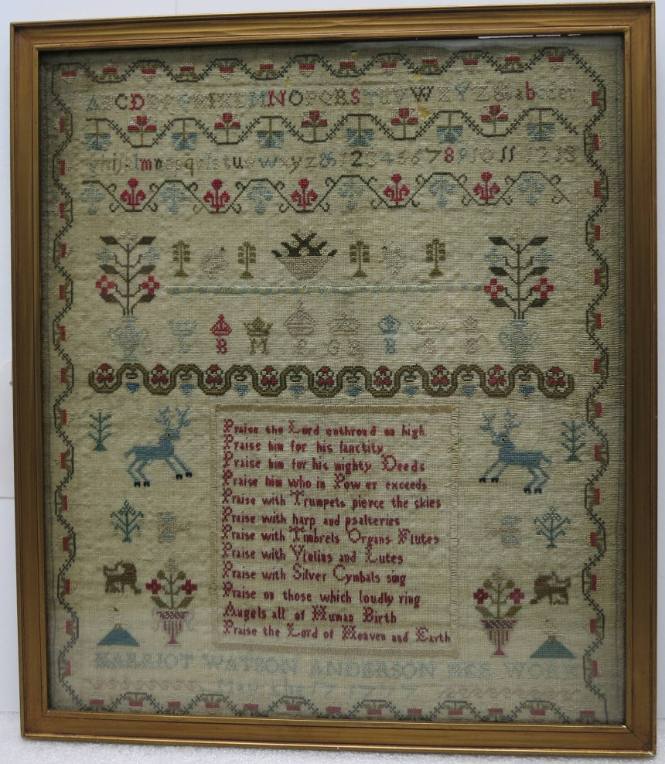 A B C D E F G H I K L M N O P Q R S T U V W X Y Z & a b c d e f
g h i j k l m n o p q r s t u v w x y z & 1 2 3 4 5 6 7 8 9 10 11 12 13
B M P G B
Praise the Lord enthrond on high
Praise him for his sanctity
Praise him for his mighty Deeds
Praise him who in Power exceeds
Praise with Trumpets pierce the skies
Praise with harp and psalteries
Praise with Timbrels Organs Flutes
Praise with Violins and Lutes
Praise with Silver Cymbals sing
Praise on those which loudly ring
Angels all of Human Birth
Praise the Lord of Heaven and Earth
HARRIOT WATSON ANDERSON HER WORK